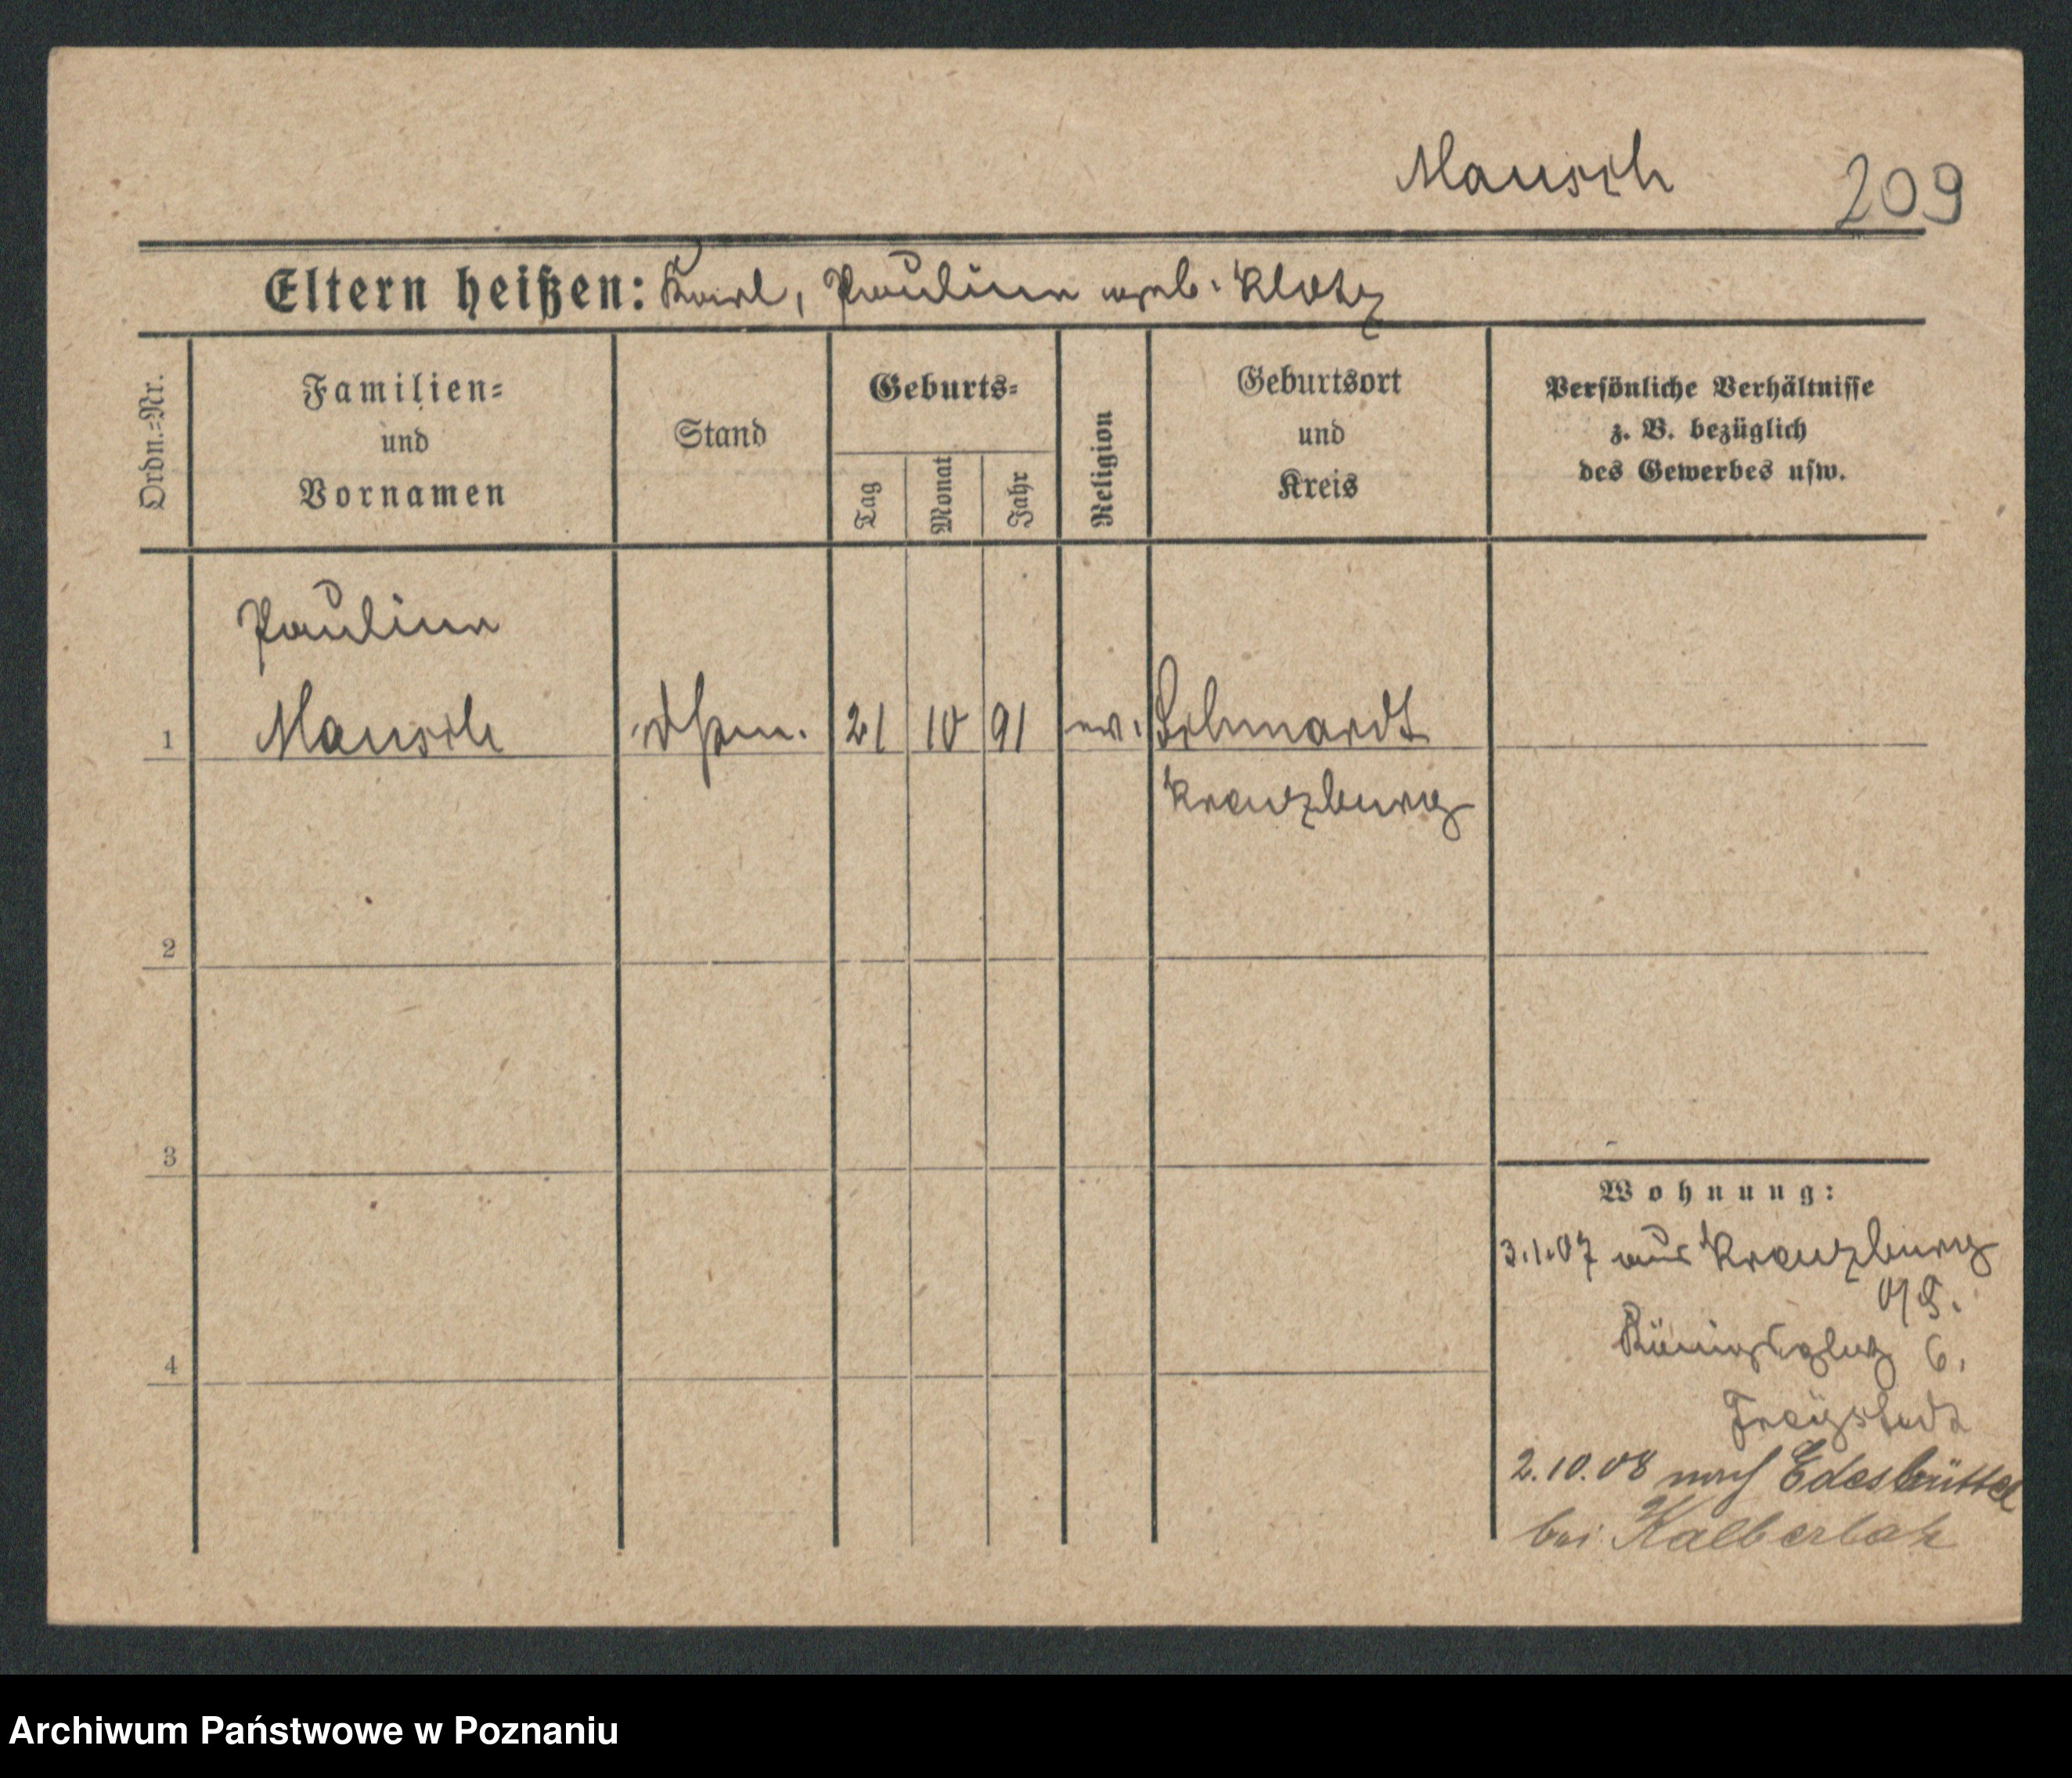 Mausch 209
Eltern heißen: Karl, Pauline geb. Klotz
Ordn.-Nr.
Familien-
und
Vornamen
Stand
Geburts-
Tag
Monat
Jahr
Religion
Geburtsort
und
Kreis
Persönliche Verhältnisse
z. B. bezüglich
des Gewerbes usw.
Pauline
1 Mausch 21 10 91 ev. Schmardt
Kreuzburg
2
3
4
Wohnung:
3.1.07 aus Kreuzburg
O/S.
Königsplatz 6.
2.10.08 nach Edesbüttel
bei